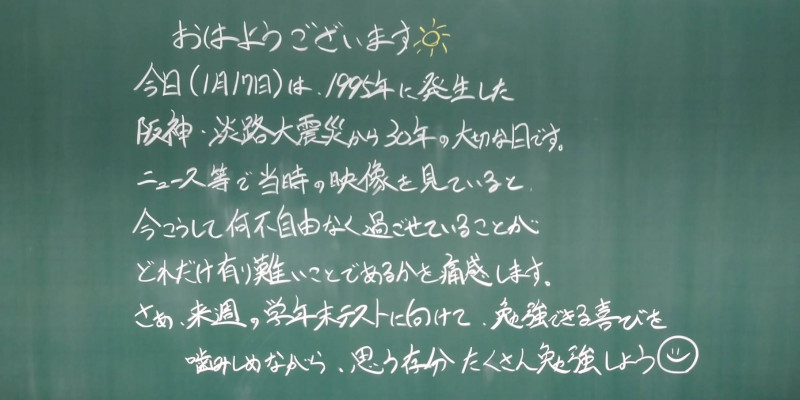 おはようございます
今日(1月17日)は、1995年に発生した
阪神・淡路大震災から30年の大切な日です。
ニュース等で当時の映像を見ていると、
今こうして何不自由なく過ごせていることが
どれだけ有り難いことであるかを痛感します。
さあ、来週の学年末テストに向けて、勉強できる喜びを
噛みしめながら、思う存分たくさん勉強しよう